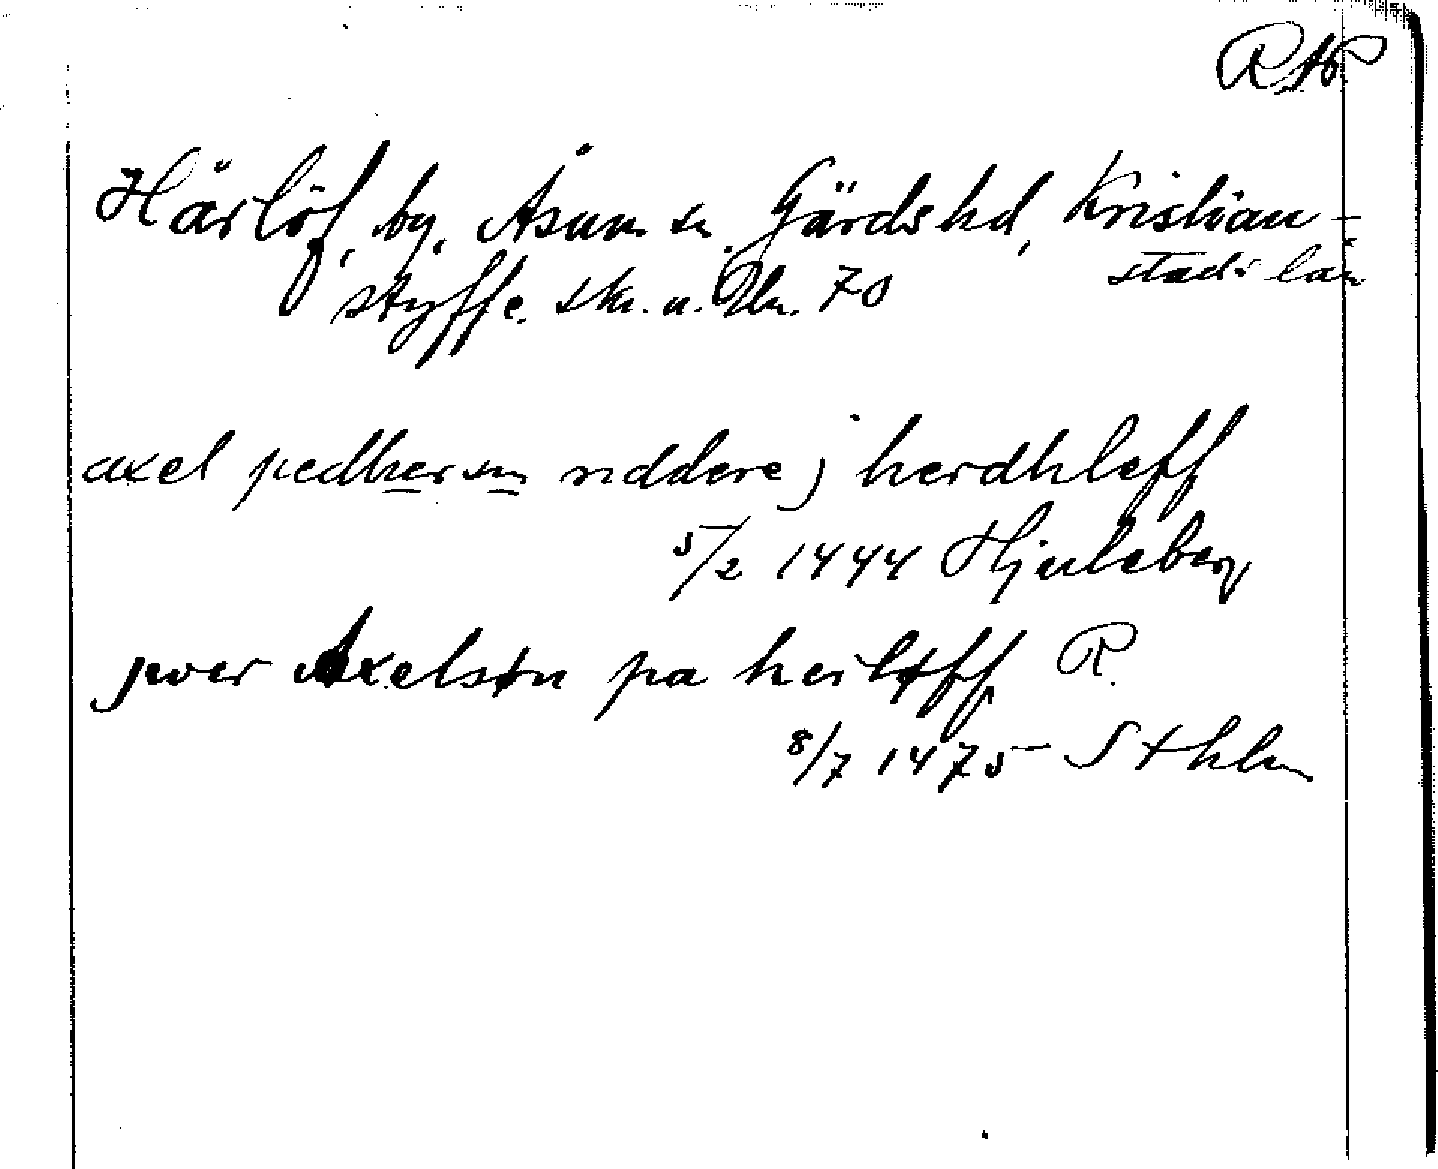 Härlöf, by, Åsum sn Gärds hd, Kristian-
stads län
Styffe. Sk. u. Un. 70
axel pedhersen riddere j herdhleff
5/2 1444 Hjuleberg
jwer Axelsøn pa herløff R.
8/7 1475 Sthlm